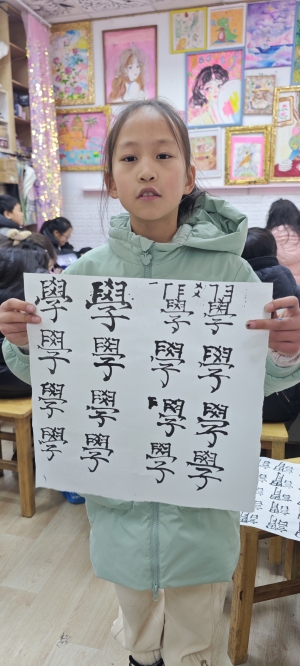 學 學 學 學
學 學 學 學
學 學 學 學
學 學 學 學